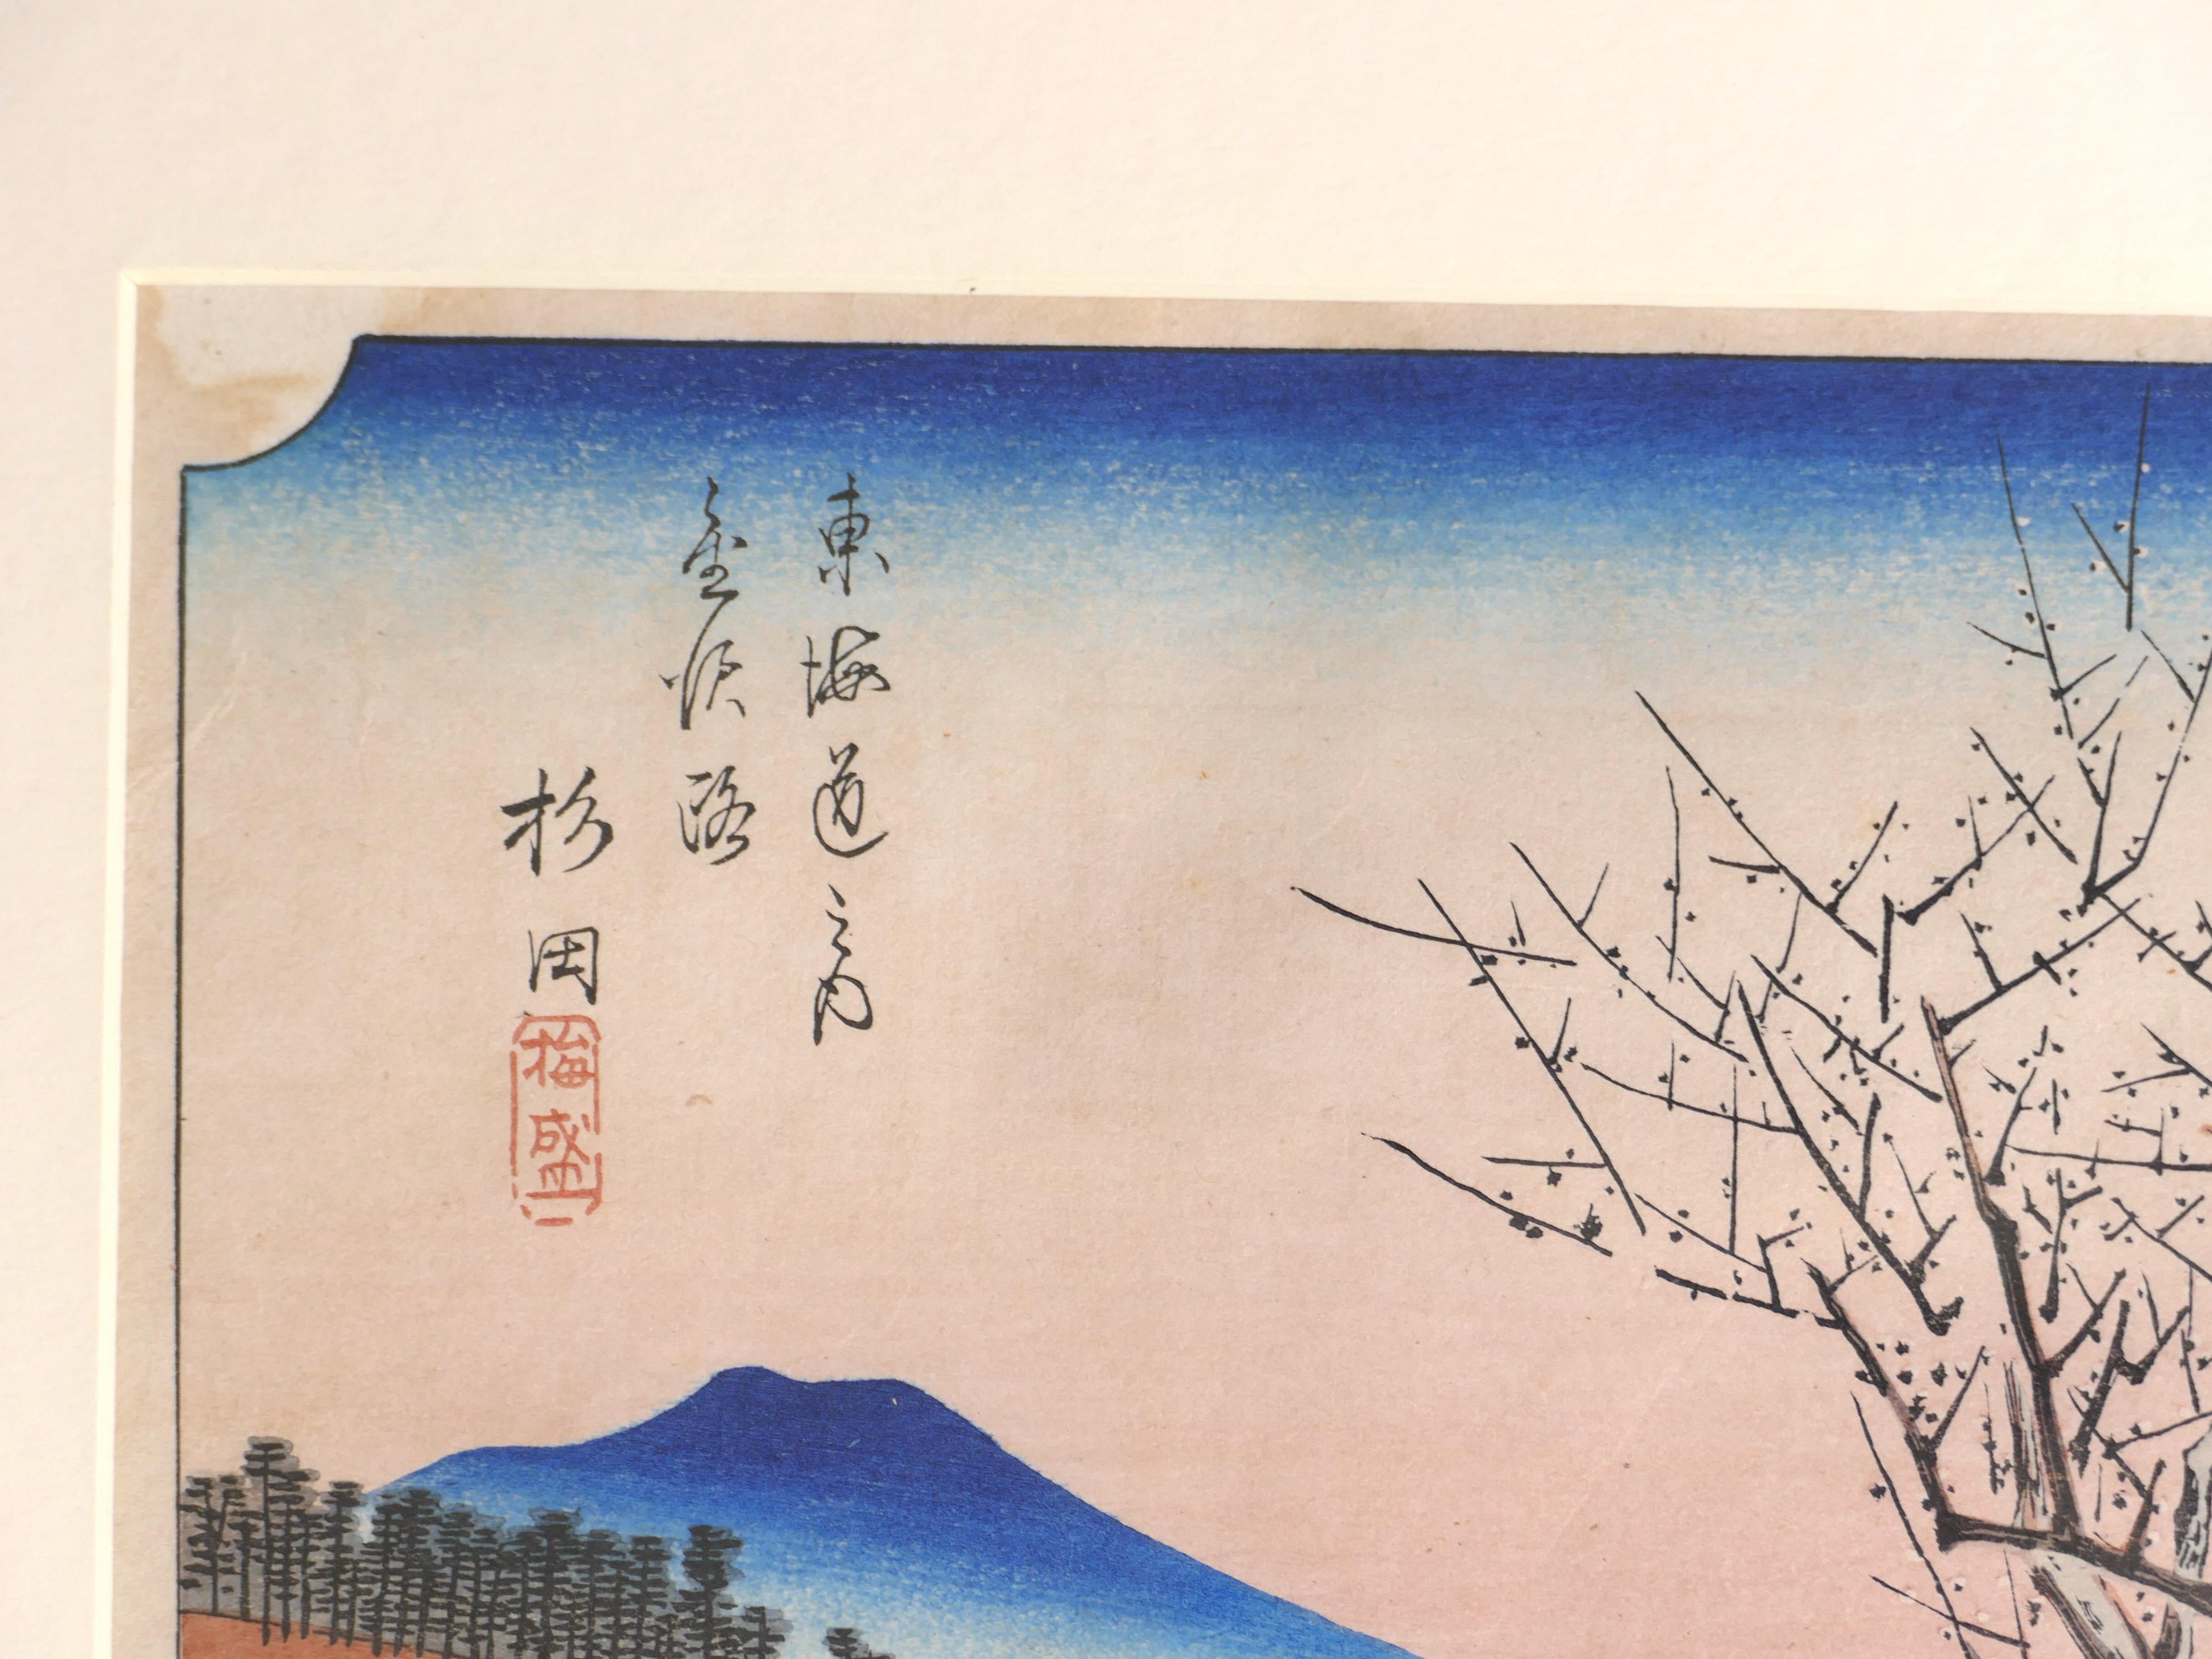 東海道之内
金澤路
杉田
梅盛